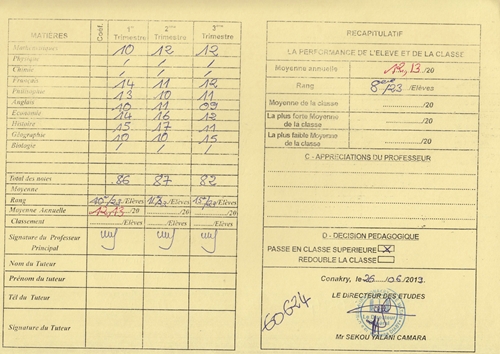 MATIÈRES Coef. 1er Trimestre 2ème Trimestre 3ème Trimestre
Mathématiques 10 12 12
Physique / / /
Chimie / / /
Français 14 11 12
Philosophie 13 10 11
Anglais 10 11 09
Economie 14 16 12
Histoire 15 17 11
Géographie 10 10 15
Biologie / / /
Total des notes 86 87 82
Moyenne
Rang /23 /Elèves /Elèves /Elèves
Moyenne Annuelle 12,13 /20 /20 /20
Classement /Elèves /Elèves /Elèves
Signature du Professeur Principal
Nom du Tuteur
Prénom du Tuteur
Tél du Tuteur
Signature du Tuteur
RÉCAPITULATIF
LA PERFORMANCE DE L'ELEVE ET DE LA CLASSE
Moyenne annuelle 12,13 /20
Rang 8e/23 /Elèves
Moyenne de la classe /20
La plus forte Moyenne de la classe /20
La plus faible Moyenne de la classe /20
C - APPRECIATIONS DU PROFESSEUR
D - DECISION PEDAGOGIQUE
PASSE EN CLASSE SUPERIEURE X
REDOUBLE LA CLASSE
Conakry, le 26 /06/2013
LE DIRECTEUR DES ETUDES
60624
Mr SEKOU YALANI CAMARA